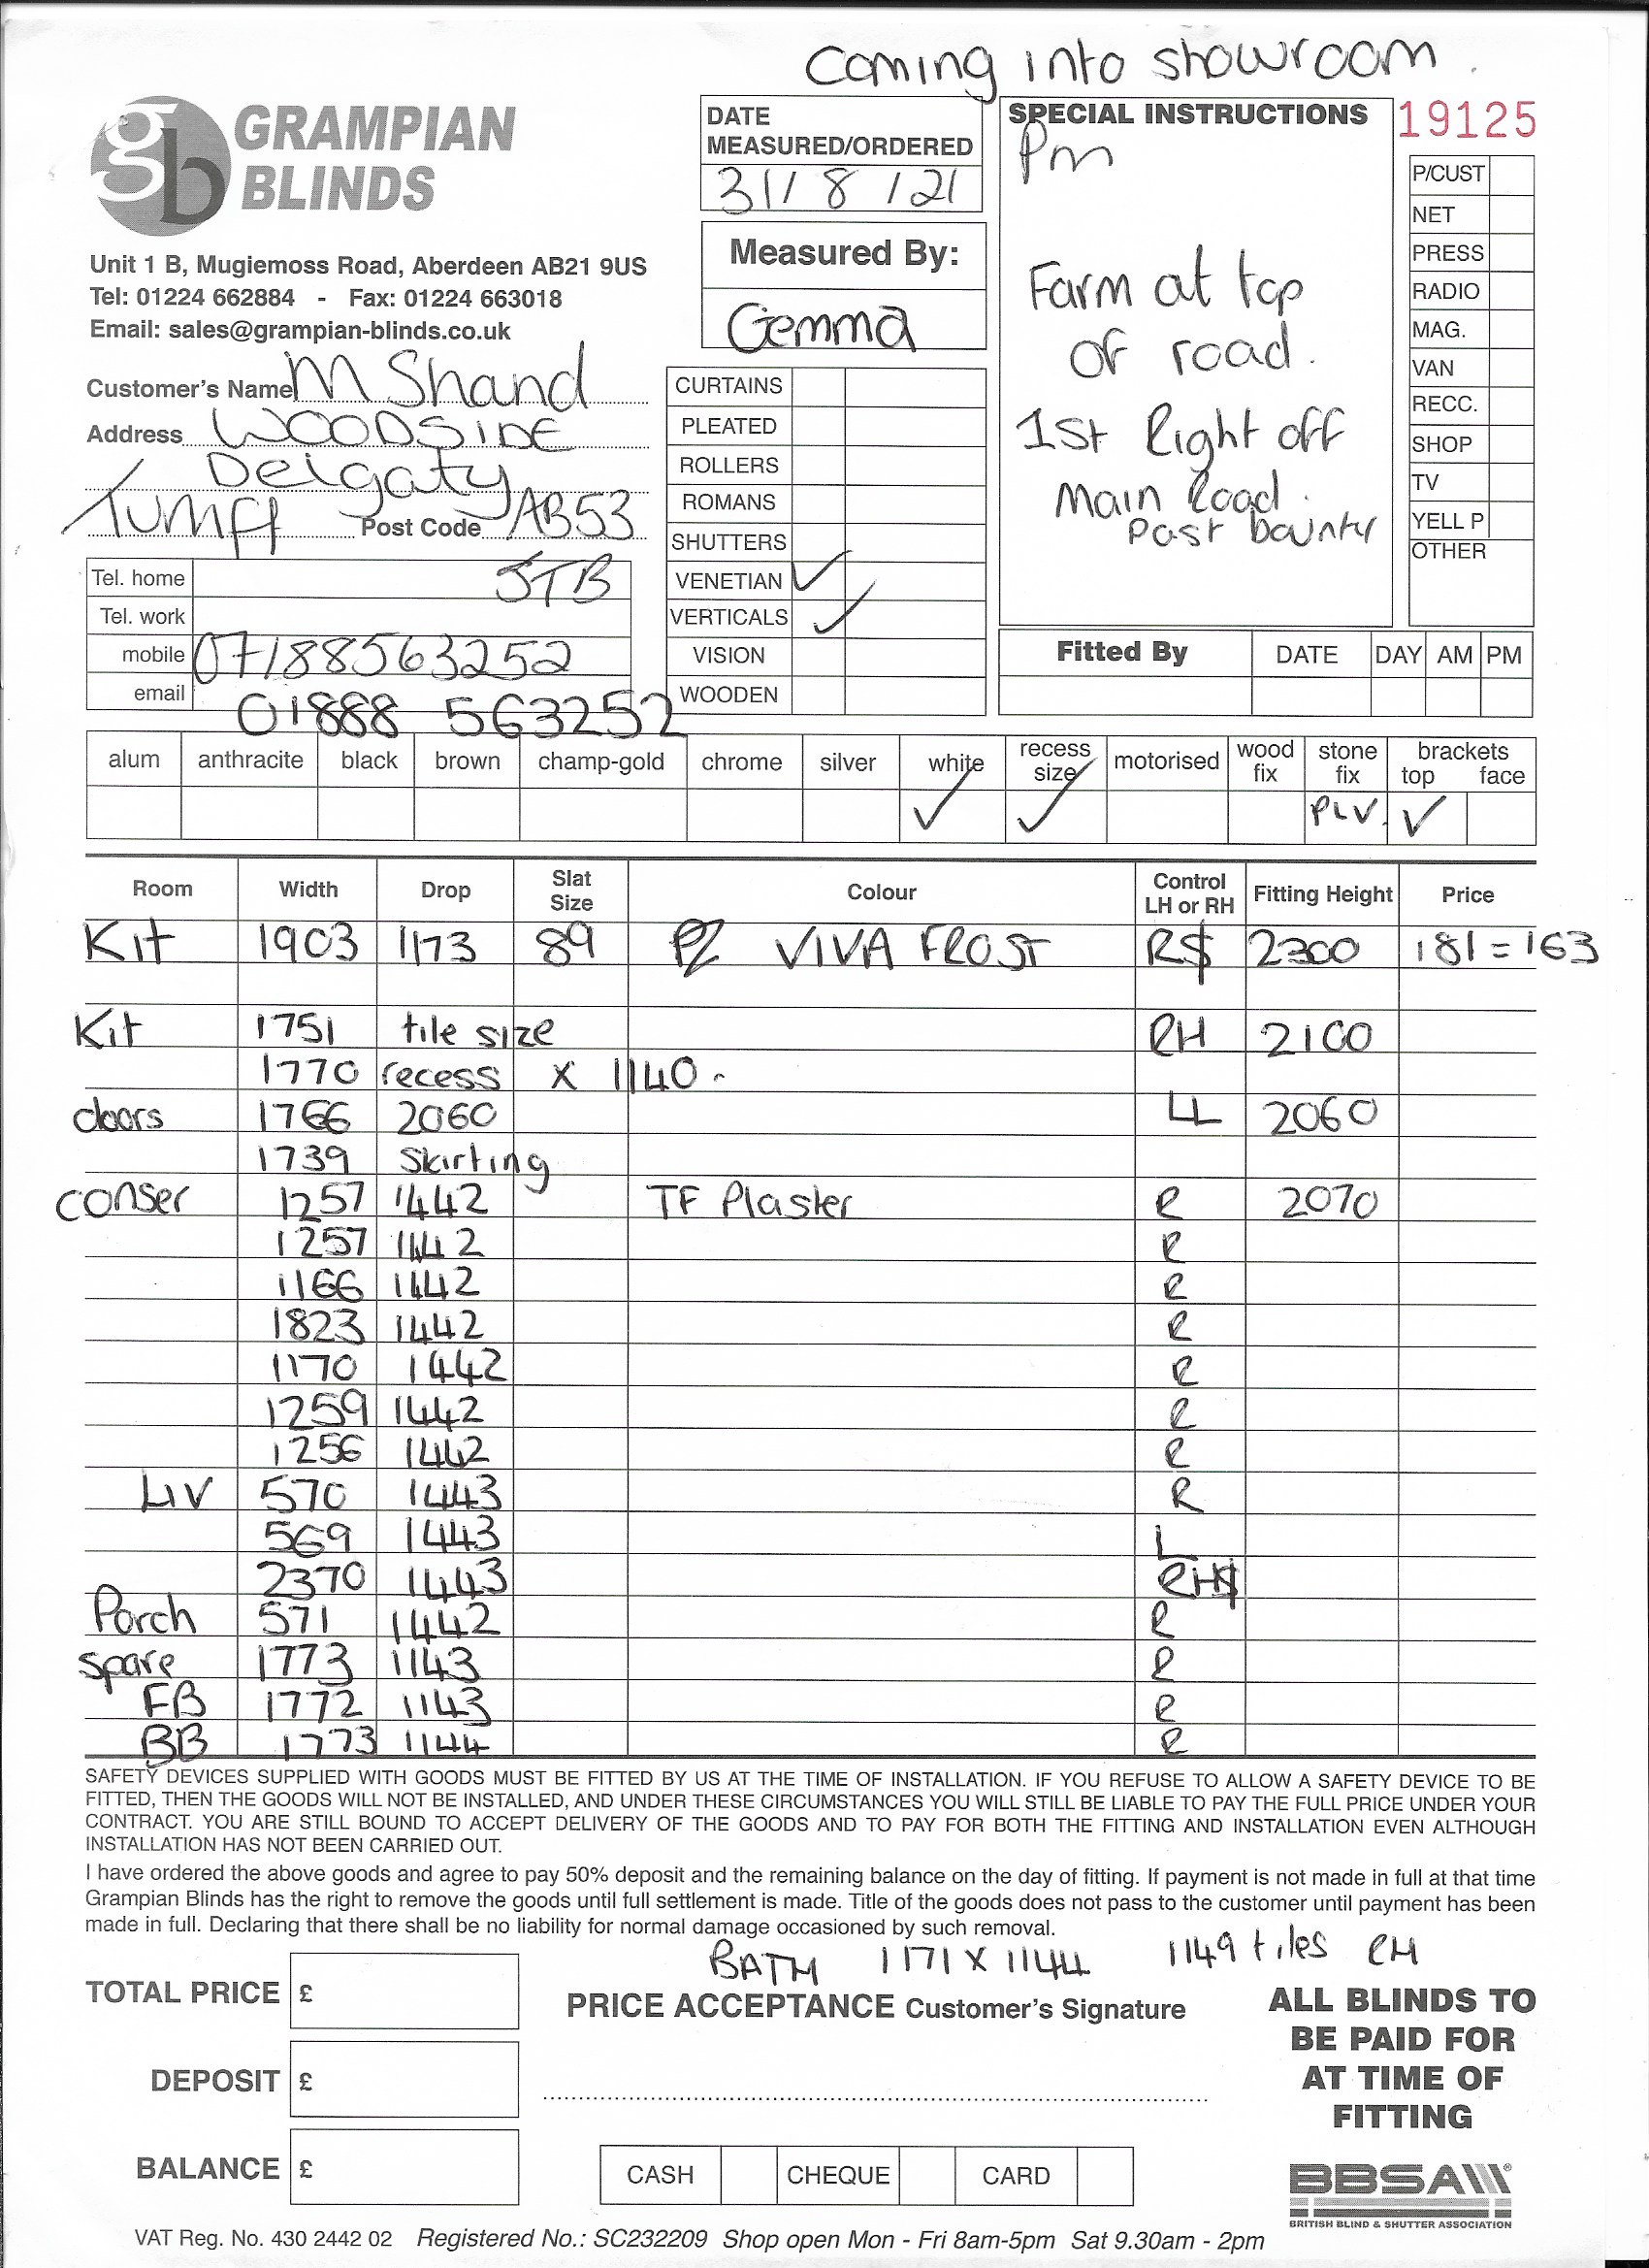 Coming into showroom.
GRAMPIAN
BLINDS
Unit 1 B, Mugiemoss Road, Aberdeen AB21 9US
Tel: 01224 662884 - Fax: 01224 663018
Email: sales@grampian-blinds.co.uk
Customer's Name M Shand
Address WOODSIDE
Delgaty
Turriff Post Code AB53
Tel. home JTB
Tel. work
mobile 07188563252
email 01888 563252
DATE
MEASURED/ORDERED
31/8/21
Measured By:
Gemma
CURTAINS
PLEATED
ROLLERS
ROMANS
SHUTTERS
VENETIAN ✓
VERTICALS ✓
VISION
WOODEN
SPECIAL INSTRUCTIONS
Pm
Farm at top
of road.
1st Right off
Main Road.
Past baunter
19125
P/CUST
NET
PRESS
RADIO
MAG.
VAN
RECC.
SHOP
TV
YELL P
OTHER
Fitted By DATE DAY AM PM
alum anthracite black brown champ-gold chrome silver white recess size motorised wood fix stone fix brackets top face
✓ ✓ PLV. ✓
Room Width Drop Slat Size Colour Control LH or RH Fitting Height Price
Kit 1903 1173 89 VIVA FROST R 2300 181 = 163
Kit 1751 tile size RH 2100
1770 recess x 1140.
doors 1766 2060 LL 2060
1739 Skirting
conser 1257 1442 TF Plaster R 2070
1257 1442 R
1166 1442 R
1823 1442 R
1170 1442 R
1259 1442 R
1256 1442 R
LIV 570 1443 R
569 1443 L
2370 1443 RH
Porch 571 1442 R
spare 1773 1143 R
FB 1772 1143 R
BB 1773 1144 R
SAFETY DEVICES SUPPLIED WITH GOODS MUST BE FITTED BY US AT THE TIME OF INSTALLATION. IF YOU REFUSE TO ALLOW A SAFETY DEVICE TO BE
FITTED, THEN THE GOODS WILL NOT BE INSTALLED, AND UNDER THESE CIRCUMSTANCES YOU WILL STILL BE LIABLE TO PAY THE FULL PRICE UNDER YOUR
CONTRACT. YOU ARE STILL BOUND TO ACCEPT DELIVERY OF THE GOODS AND TO PAY FOR BOTH THE FITTING AND INSTALLATION EVEN ALTHOUGH
INSTALLATION HAS NOT BEEN CARRIED OUT.
I have ordered the above goods and agree to pay 50% deposit and the remaining balance on the day of fitting. If payment is not made in full at that time
Grampian Blinds has the right to remove the goods until full settlement is made. Title of the goods does not pass to the customer until payment has been
made in full. Declaring that there shall be no liability for normal damage occasioned by such removal.
BATH 1171 X 1144 1149 tiles RH
TOTAL PRICE £
DEPOSIT £
BALANCE £
PRICE ACCEPTANCE Customer's Signature
CASH CHEQUE CARD
ALL BLINDS TO
BE PAID FOR
AT TIME OF
FITTING
BBSA
BRITISH BLIND & SHUTTER ASSOCIATION
VAT Reg. No. 430 2442 02 Registered No.: SC232209 Shop open Mon - Fri 8am-5pm Sat 9.30am - 2pm